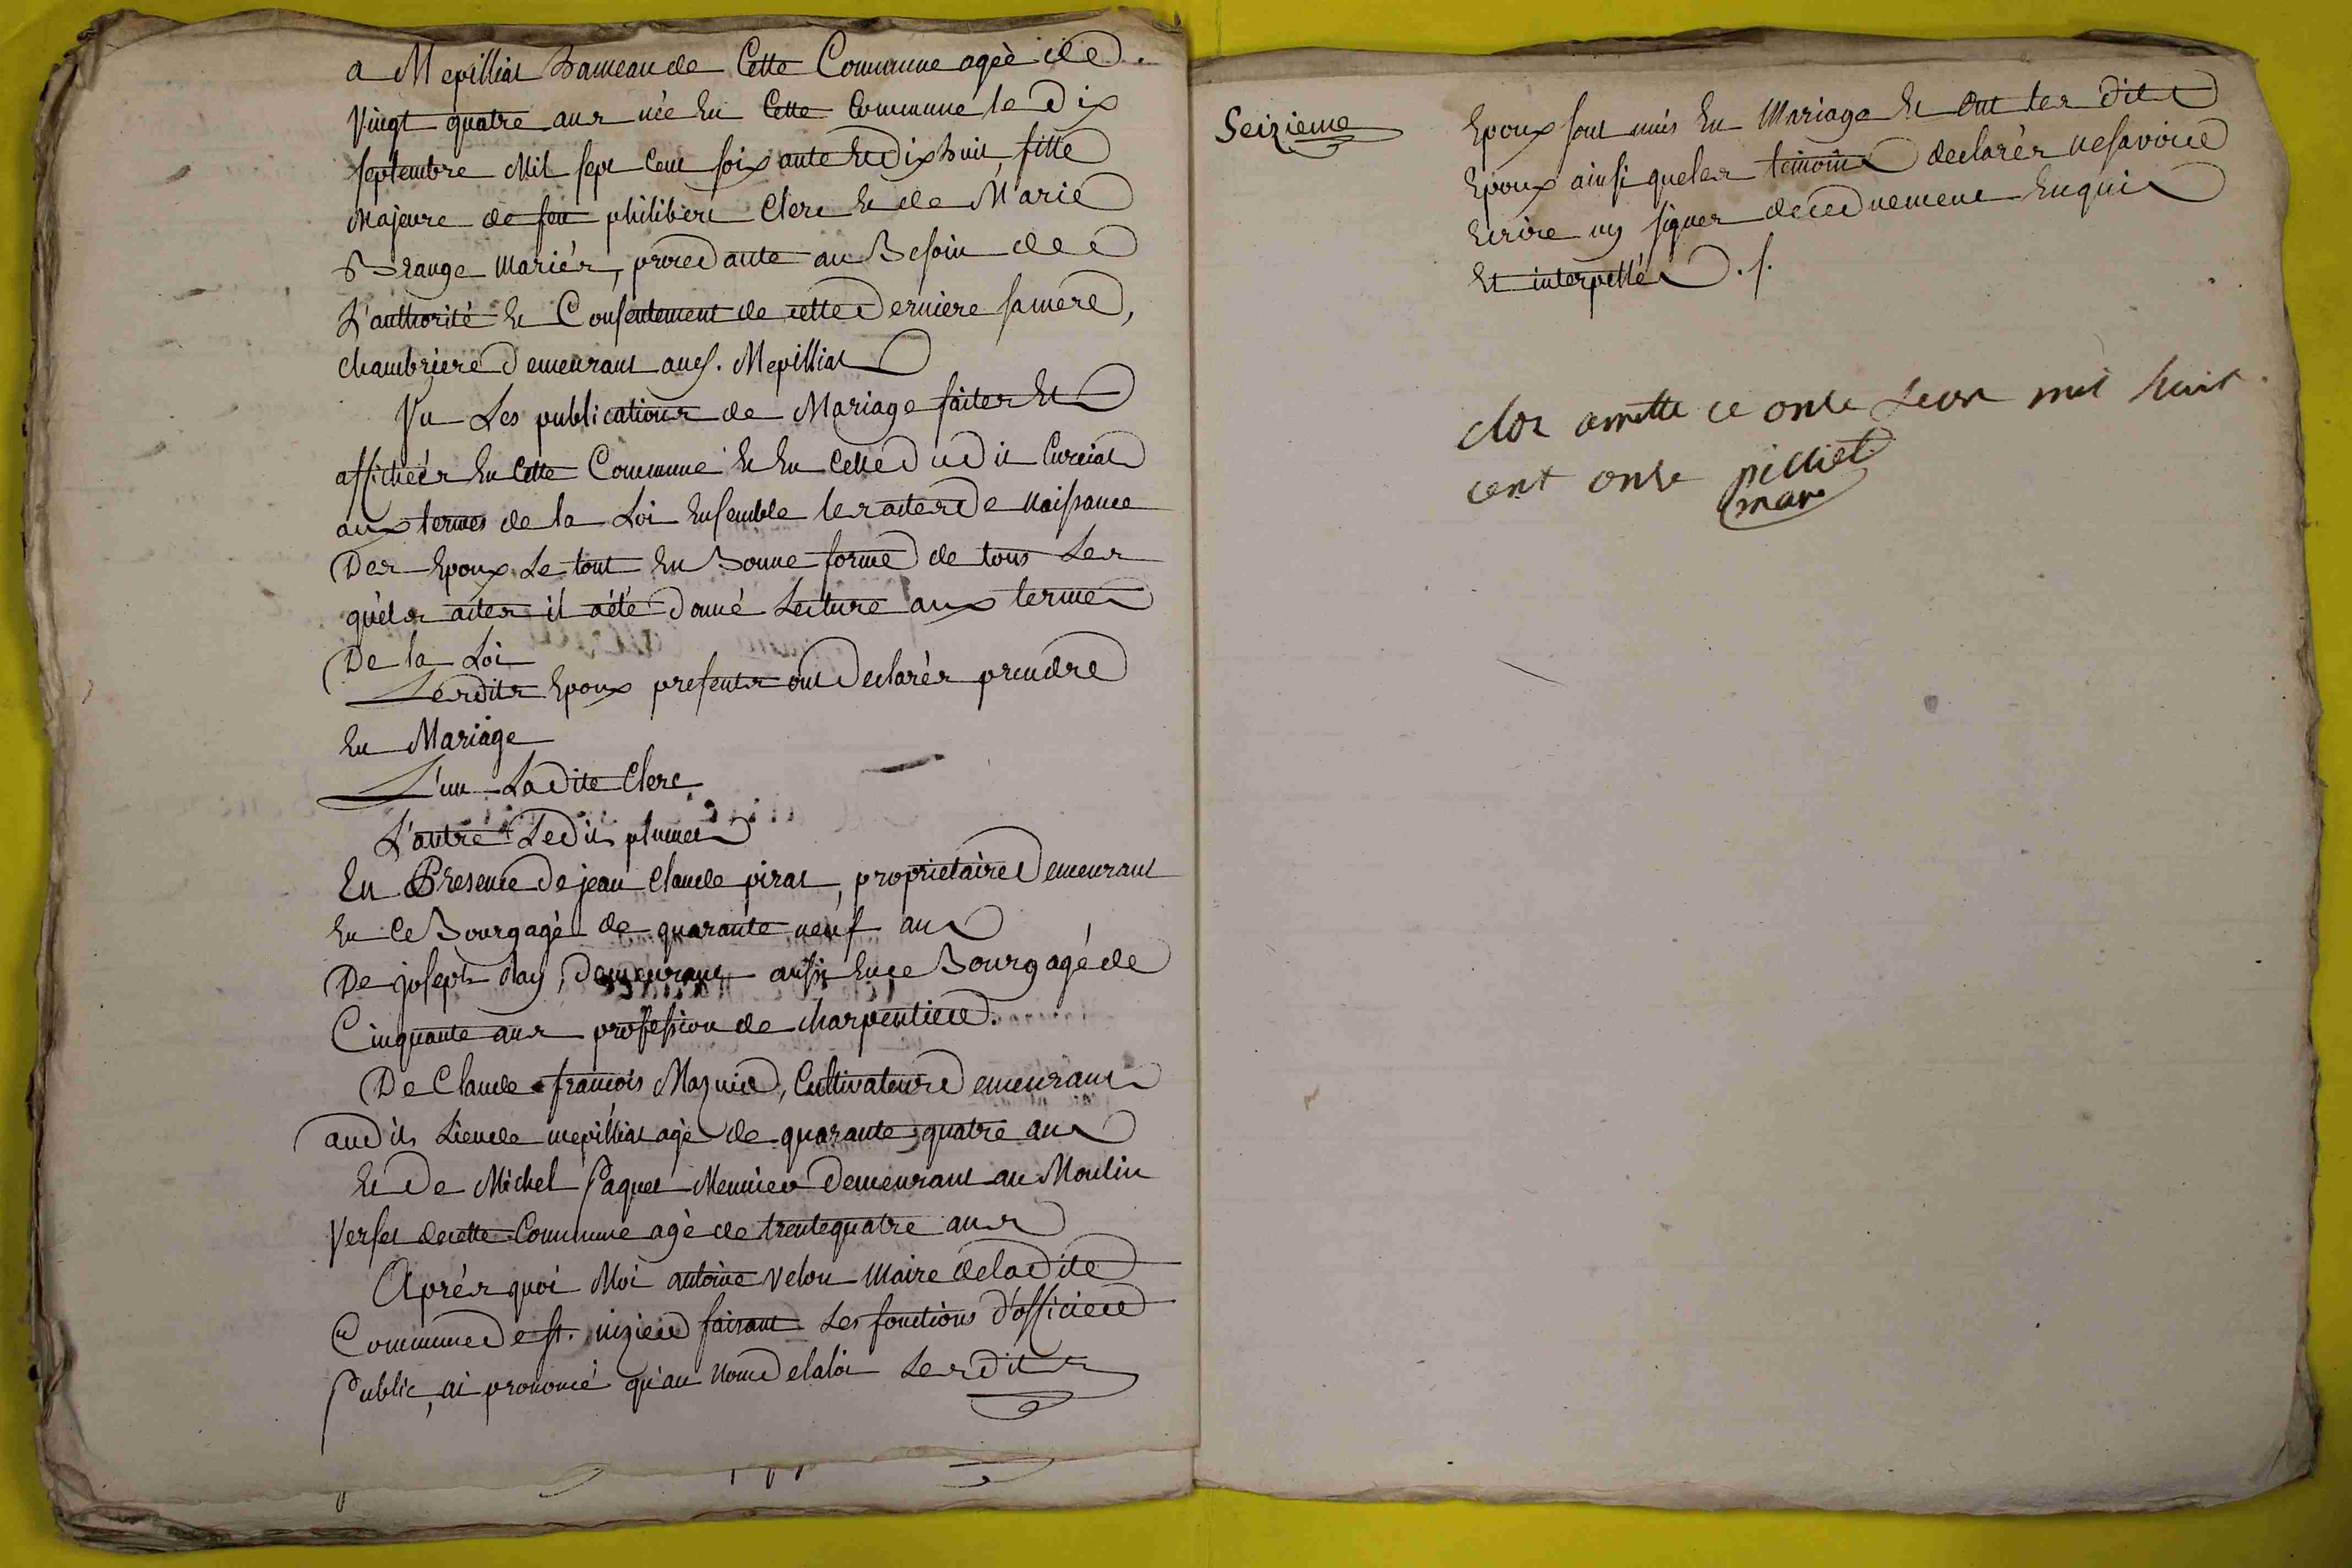 a Mepilliat hameau de Cette Commune agèe de
Vingt quatre ans née En Cette Commune le Dix
septembre Mil sept Cent soixante Et Dix huit, fille
Majeure de feu philibert Clerc Et de Marie
mariés, procedante au Besoin de
L'authorité Et Consentement de cette Derniere sa mere,
chambriere Demeurant aud. Mepilliat
Vu Les publications de Mariage faites Et
affichées En Cette Commune Et En Celle dudit Curciat
aux termes de la Loi Ensemble les actes De Naissance
Des Epoux Le tout En Bonne forme de tous Les
quèls actes il a été Donné Lecture aux termes
De la Loi
Lesdits Epoux presents ont Declarés prendre
En Mariage
L'un Ladite Clerc
L'autre Ledit plumet
En Presence De jean Claude pirat, proprietaire Demeurant
En Ce Bourg agè de quarante neuf ans
De joseph Demeurant aussi En ce Bourg agé de
Cinquante ans profession de charpentier.
De Claude francois Cultivateur Demeurant
audit Lieu de mepilliat agè de quarante quatre ans
Et De Michel Paquet Meunier Demeurant au Moulin
Verset de cette Commune agè de trente quatre ans
Aprés quoi Moi antoine Velon Maire de la Dite
Commune De St. nizier faisant Les fonctions d'officier
Public, ai prononcé qu'au Nom de la loi Les dits
Seizieme
Epoux sont unis En Mariage Et Ont les dits
Epoux ainsi que les temoins declarés ne savoir
Ecrire ny signer de ce duement Enquis
Et interpellés ./.
clos arretté ce onse mil huit
cent onse pilliet
mare